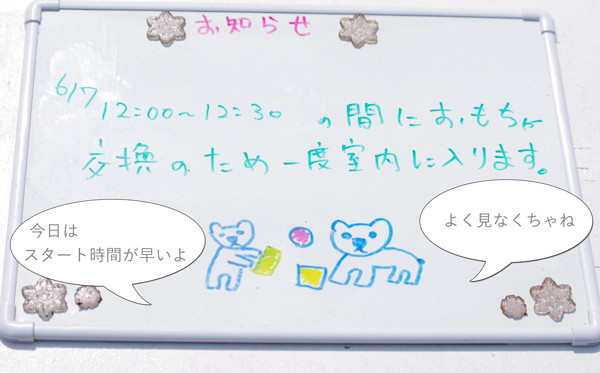 お知らせ
6/7 12:00～12:30 の間におもちゃ
交換のため一度室内に入ります。
今日は
スタート時間が早いよ
よく見なくちゃね